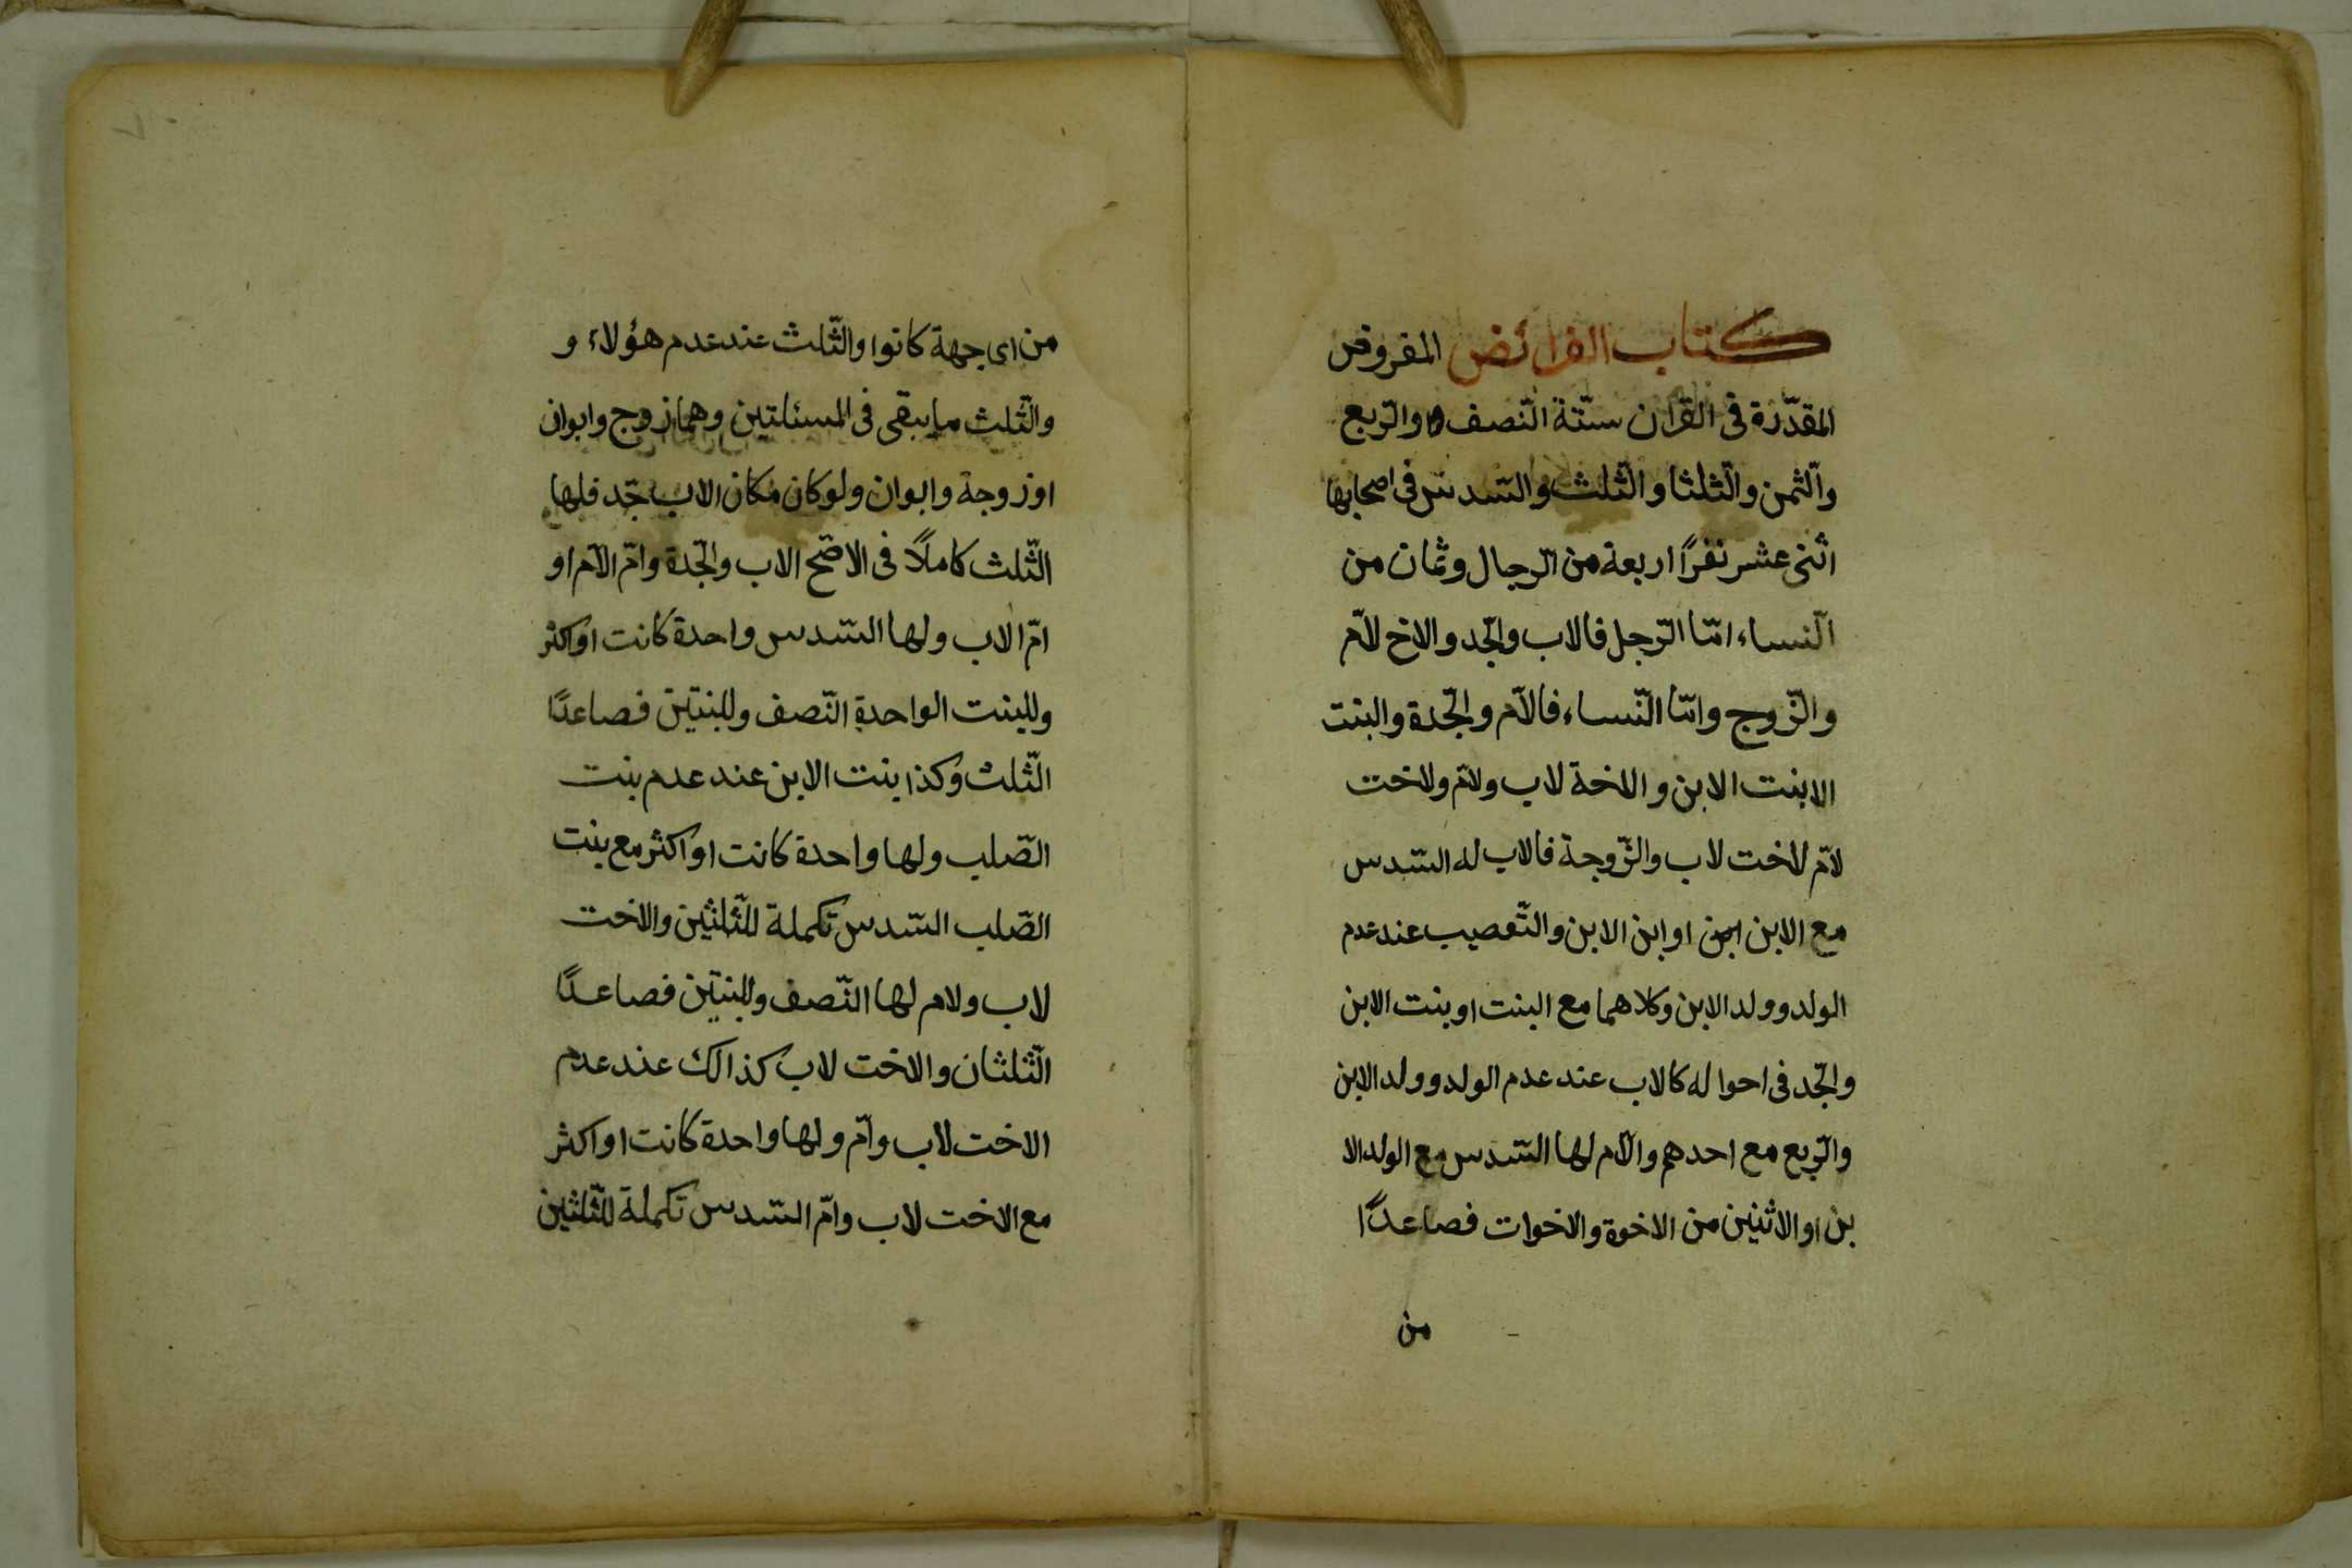 كتاب الفرائض المفروض
المقدّرة فى القرآن ستّة النّصف والرّبع
والثّمن والثّلثا والثّلث والسّدس فى اصحابها
اثنى عشر نفرًا اربعة من الرّجال وثمان من
النّساء امّا الرّجل فالاب والجّد والاخ لامّ
والزّوج وامّا النّساء فالامّ والجّدة والبنت
الابنت الابن والاخة لاب ولامّ ولاخت
لامّ لاخت لاب والزّوجة فالاب له السّدس
مع الابن ابن او ابن الابن والتّعصيب عند عدم
الولد وولد الابن وكلاهما مع البنت او بنت الابن
والجّد فى احواله كالاب عند عدم الولد وولد الابن
والرّبع مع احدهم والامّ لها السّدس مع الولد الا
بن او الاثنين من الاخوة والاخوات فصاعدًا
من
من اى جهة كانوا والثّلث عند عدم هؤلاء و
والثّلث ما يبقى فى المسئلتين وهما زوج وابوان
او زوجة وابوان ولو كان مكان الاب جّد فلها
الثّلث كاملًا فى الاصّح الاب والجّدة وامّ الامّ او
امّ الاب ولها السّدس واحدة كانت او اكثر
وللبنت الواحدة النّصف وللبنتين فصاعدًا
الثّلث وكذا بنت الابن عند عدم بنت
الصّلب ولها واحدة كانت او اكثر مع بنت
الصّلب السّدس تكملة للثّلثين والاخت
لاب ولام لها النّصف وللبنتين فصاعدًا
الثّلثان والاخت لاب كذالك عند عدم
الاخت لاب وامّ ولها واحدة كانت او اكثر
مع الاخت لاب وامّ السّدس تكملة للثّلثين